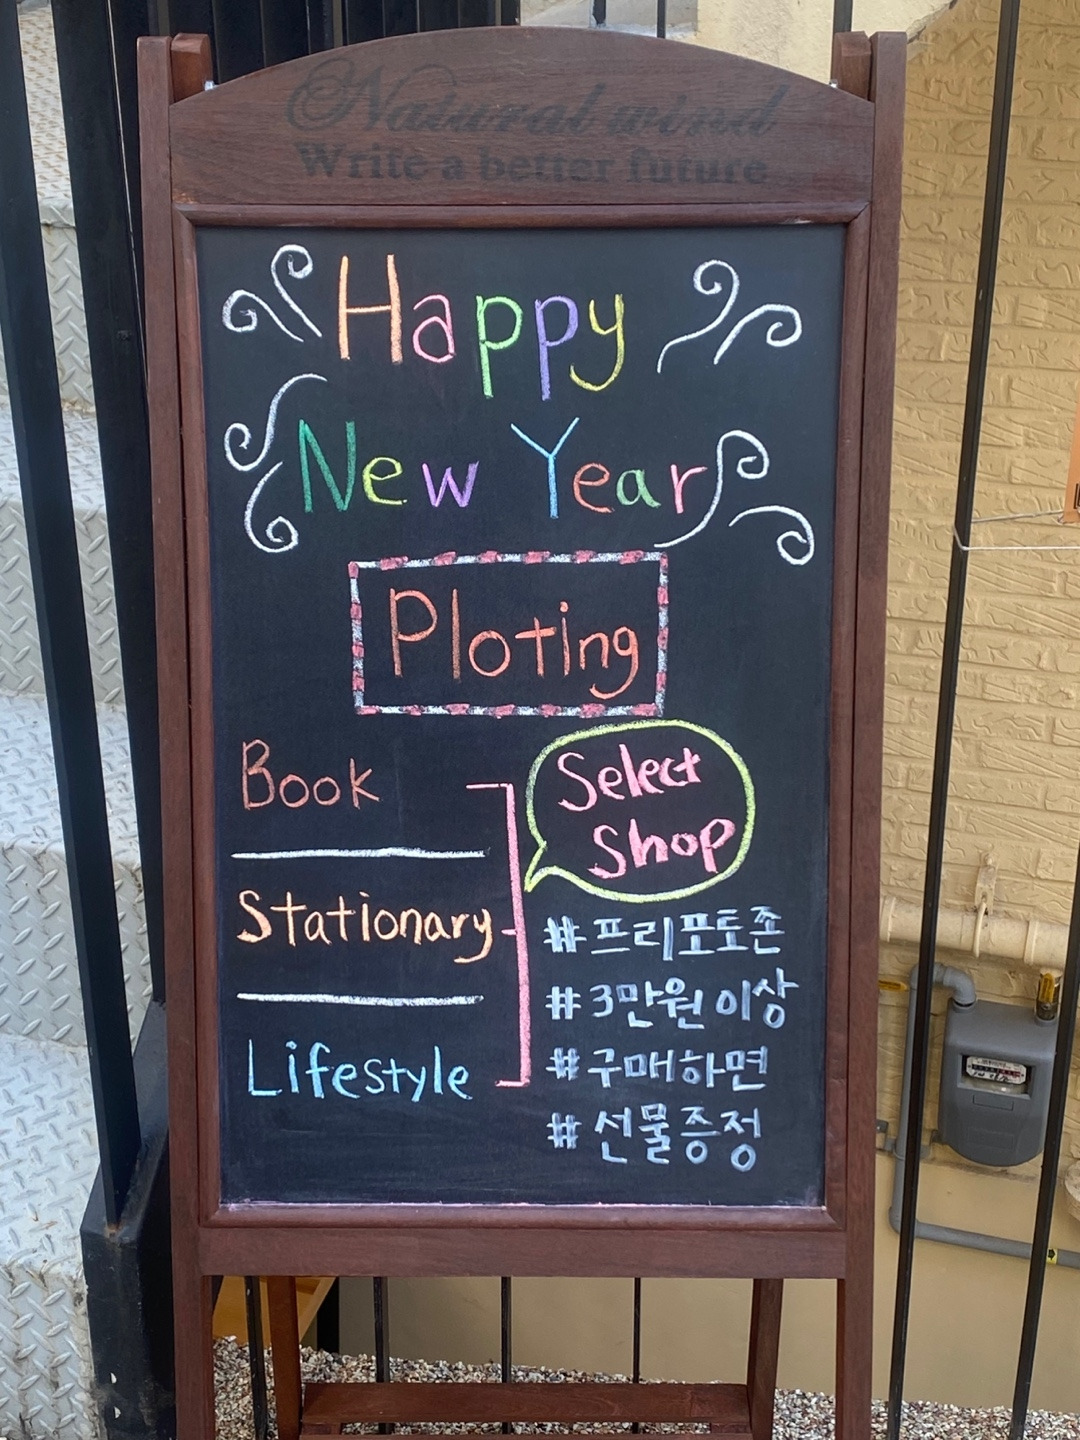 Natural wind
Write a better future
Happy
New Year
Ploting
Book
Stationary
Lifestyle
Select
Shop
#프리포토존
#3만원이상
#구매하면
#선물증정